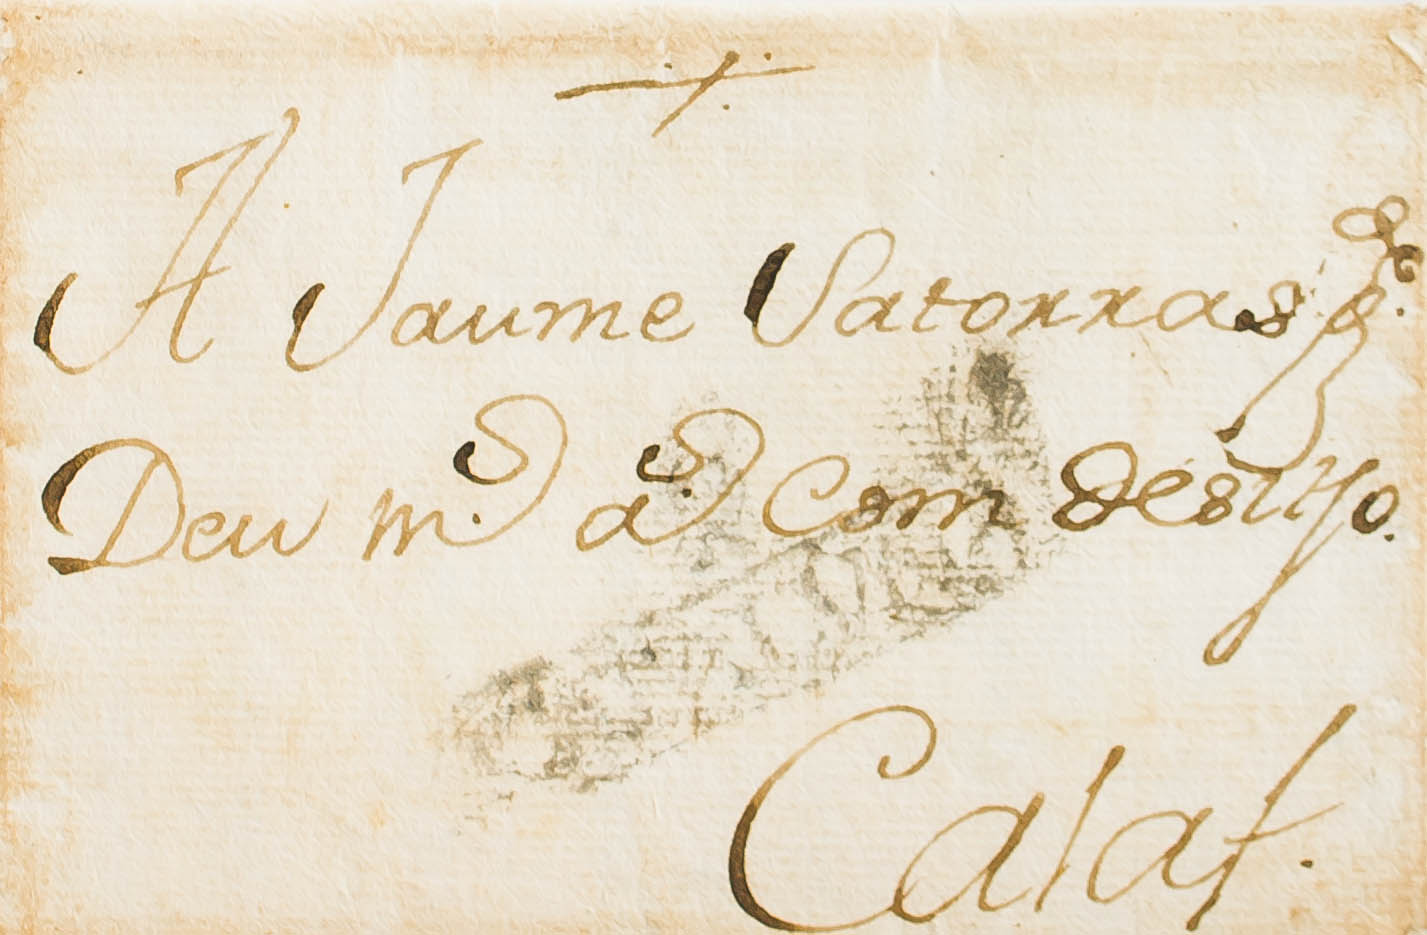 A Jaume Satorras
Deu m. a. Com desitjo.
Calaf.